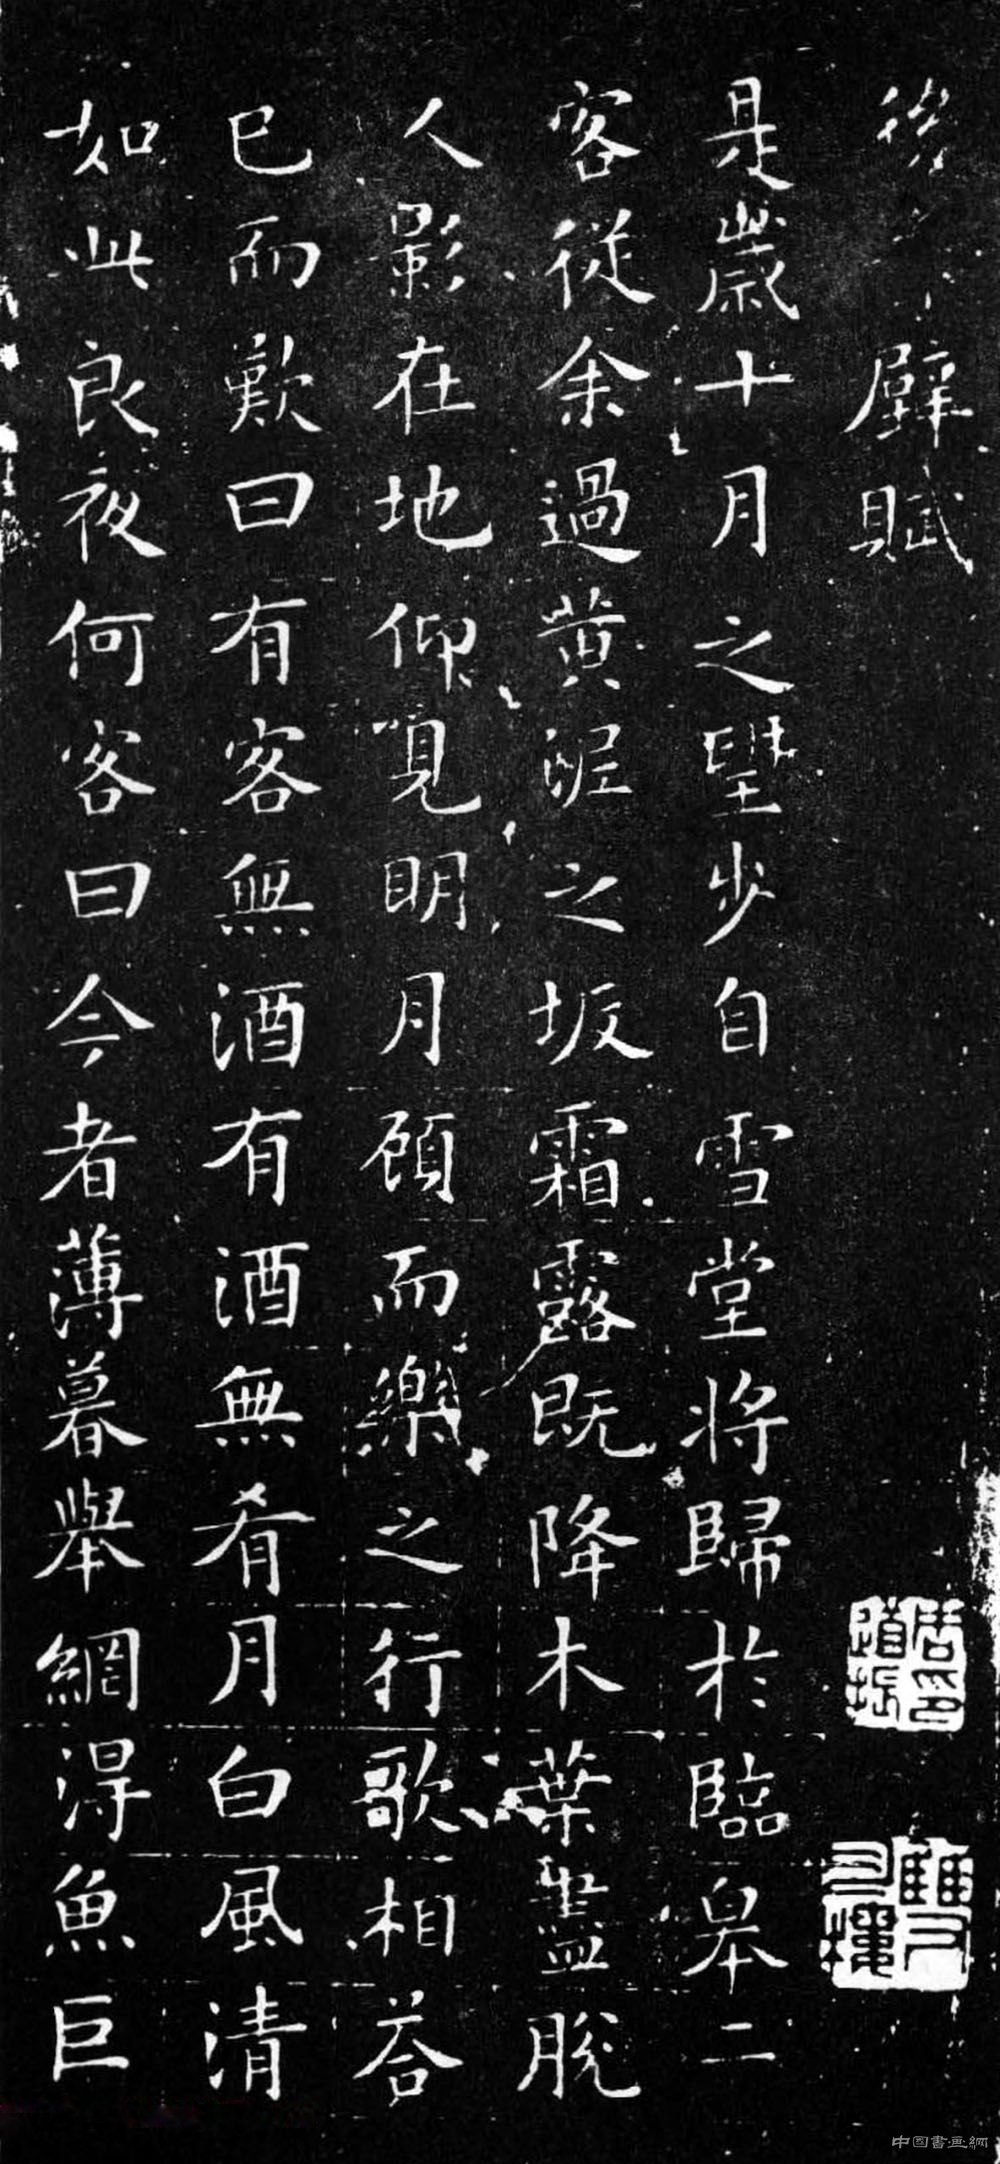 後壁賦
是歲十月之望步自雪堂將歸於臨皋二
客從余過黃泥之坂霜露既降木葉盡脫
人影在地仰見明月顧而樂之行歌相荅
已而歎曰有客無酒有酒無肴月白風清
如此良夜何客曰今者薄暮舉網得魚巨
周印道振
中国書画網